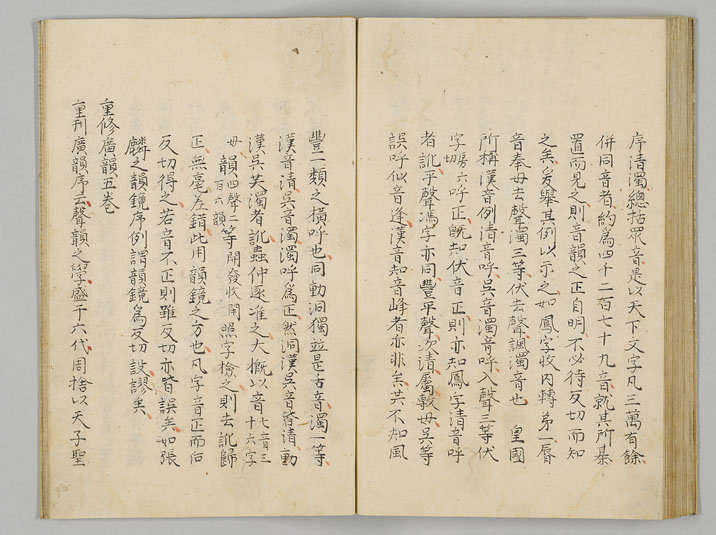 序清濁總括眾音是以天下文字凡三萬有餘
併同音者約為四千二百七十九音就其所綦
置而見之則音韻之正自明不必待反切而知
之矣爰舉其例以示之如鳳字收內轉第一脣
音奉母去聲濁三等伏去聲諷濁音也 皇國
所稱漢音例清音呼吳音濁音呼入聲三等伏
字房六切呼正既知伏音正則亦知鳳字清音呼
者訛平聲馮字亦同豐平聲次清屬敷母吳等
誤呼似音逢漢音知音峰者亦非矣共不知風
豐一類之橫呼也同動洞獨並是舌音濁一等
漢音清吳音濁濁呼為正然洞漢吳音皆清動
漢吳芙濁者訛蟲仲逐准之大槪以音七音三十六字
母韻四聲二百六韻等開發收閉照字檢之則去訛歸
正無毫差錯此用韻鏡之方也凡字音正而后
反切得之若音不正則雖反切亦皆誤矣如張
麟之韻鏡序例謂韻鏡為反切設謬矣
重修廣韻五卷
重刊廣韻序云聲韻之學盛于六代周捨以天子聖